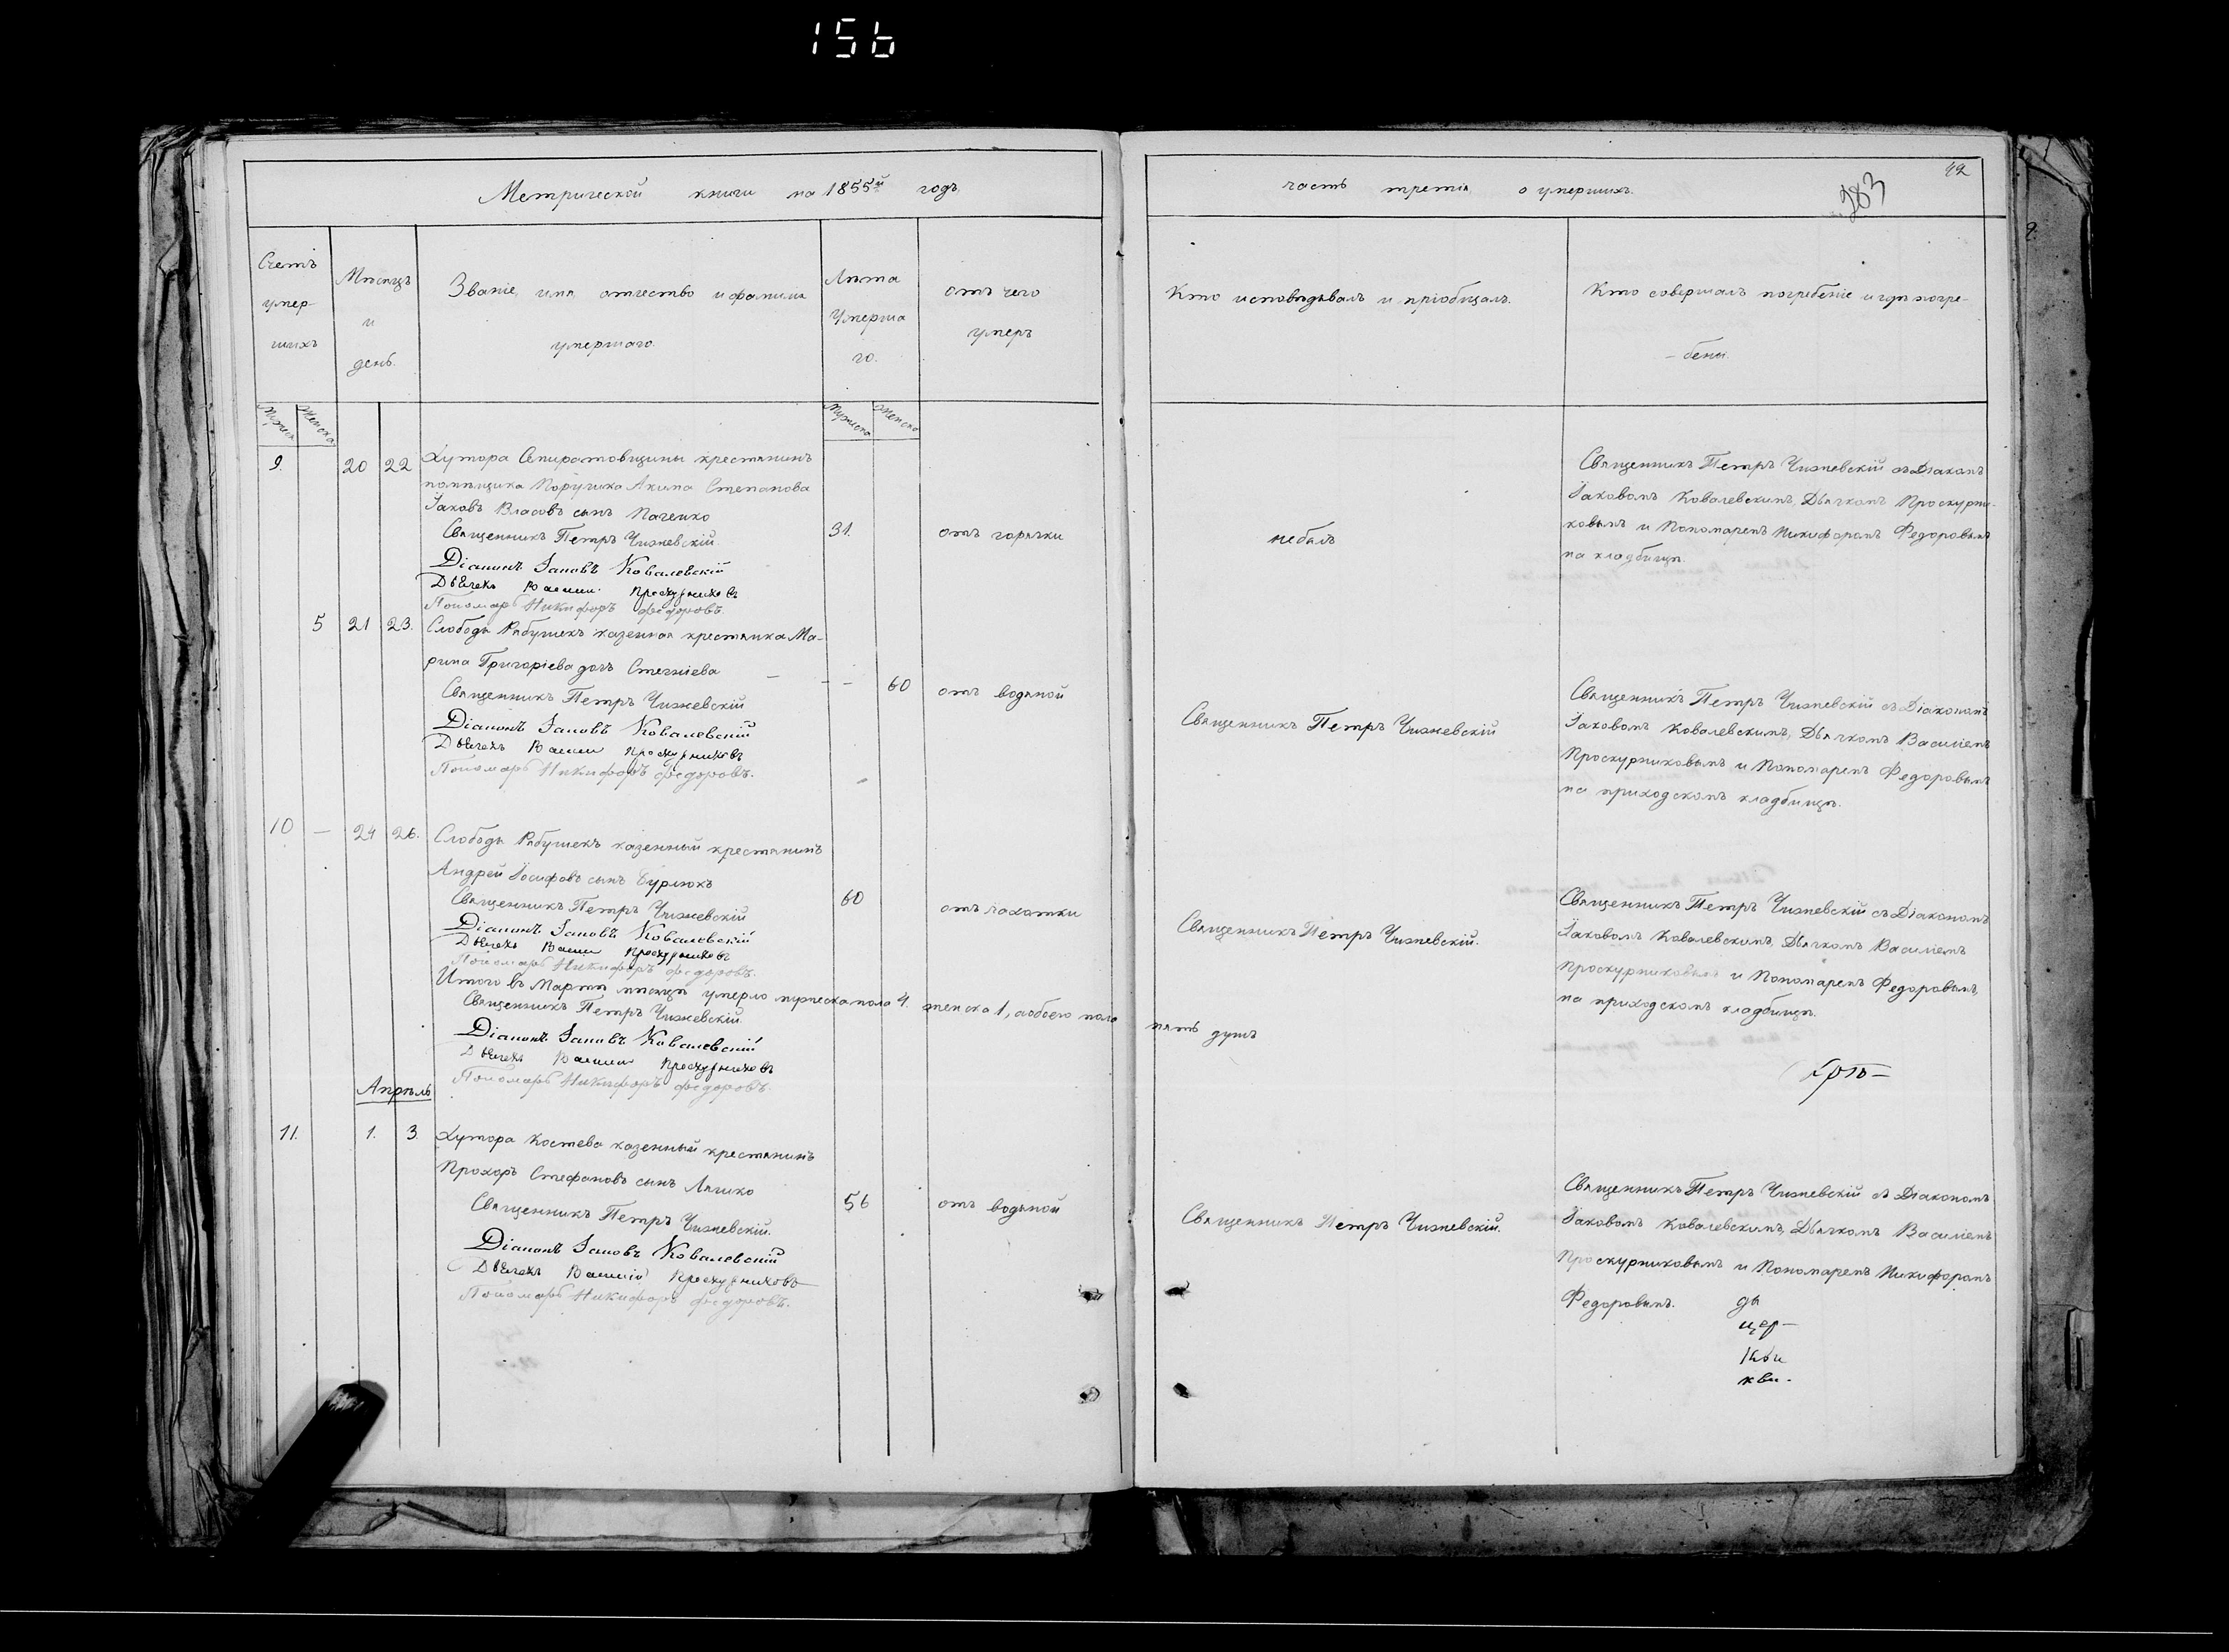 156
Метрической книги на 1855й годъ
часть третія о умершихъ.
283
42
Счетъ умер-
шихъ
Мѣсяцъ
и
день.
Званіе, имя, отчество и фамилія
умершаго.
Лѣта
Умерша
го.
отъ чего
умеръ
Кто исповѣдывалъ и пріобщалъ.
Кто совершалъ погребеніе и гдѣ погре-
- бены.
Мужеск
Женска
Мужеска
Женска
9.
20
22
Хутора Спиратовщины крестянинъ
помѣщика Поручика Акима Степанова
Іаковъ Власовъ сынъ Паченко
31.
отъ горячки
Священникъ Петръ Чижевскій.
Діаконъ Іаковъ Ковалевскій
Дьячекъ Василій Проскурниковъ
Пономарь Никифоръ Федоровъ.
небылъ
Священникъ Петръ Чижевскій съ Діаконом
Іаковомъ Ковалевскимъ, Дьячкомъ Проскурни-
ковымъ и Пономаремъ Никифоромъ Федоровымъ
на кладбищѣ.
5
21
23.
Слободы Рябушекъ казенная крестянка Ма-
рина Григоріева дочь Стегніева
60
отъ водяной
Священникъ Петръ Чижевскій
Діаконъ Іаковъ Ковалевскій
Дьячекъ Василій Проскурниковъ
Пономарь Никифоръ Федоровъ.
Священникъ Петръ Чижевскій
Священникъ Петръ Чижевскій съ Діакономъ
Іаковомъ Ковалевскимъ, Дьячкомъ Василіемъ
Проскурниковымъ и Пономаремъ Федоровымъ
на приходскомъ кладбищѣ.
10
—
24
26.
Слободы Рябушекъ казенный крестянинъ
Андрей Іосифовъ сынъ Бурлюкъ
60
отъ чахотки
Священникъ Петръ Чижевскій
Діаконъ Іаковъ Ковалевскій
Дьячекъ Василій Проскурниковъ
Пономарь Никифоръ Федоровъ.
Священникъ Петръ Чижевскій.
Священникъ Петръ Чижевскій съ Діакономъ
Іаковомъ Ковалевскимъ, Дьячкомъ Василіемъ
Проскурниковымъ и Пономаремъ Федоровымъ,
на приходскомъ кладбищѣ.
Итого въ Мартѣ мѣсяцѣ умерло мужеска пола 4. женска 1, а обоего пола пять душъ
Священникъ Петръ Чижевскій.
Діаконъ Іаковъ Ковалевскій
Дьячекъ Василій Проскурниковъ
Пономарь Никифоръ Федоровъ.
Апрѣль
11.
1.
3.
Хутора Костева казенный крестянинъ
Прохоръ Стефановъ сынъ Лячко
56
отъ водяной
Священникъ Петръ Чижевскій.
Діаконъ Іаковъ Ковалевскій
Дьячекъ Василій Проскурниковъ
Пономарь Никифоръ Федоровъ.
Священникъ Петръ Чижевскій.
Священникъ Петръ Чижевскій съ Діакономъ
Іаковомъ Ковалевскимъ, Дьячкомъ Василіемъ
Проскурниковымъ и Пономаремъ Никифоромъ
Федоровымъ.
цер-